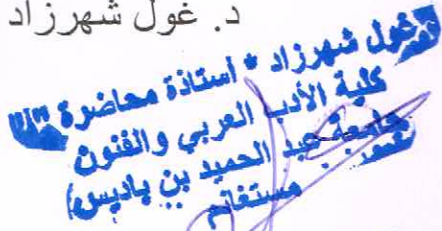 د. غول شهرزاد
غول شهرزاد * أستاذة محاضرة "أ"
كلية الأدب العربي والفنون
جامعة عبد الحميد بن باديس
مستغانم